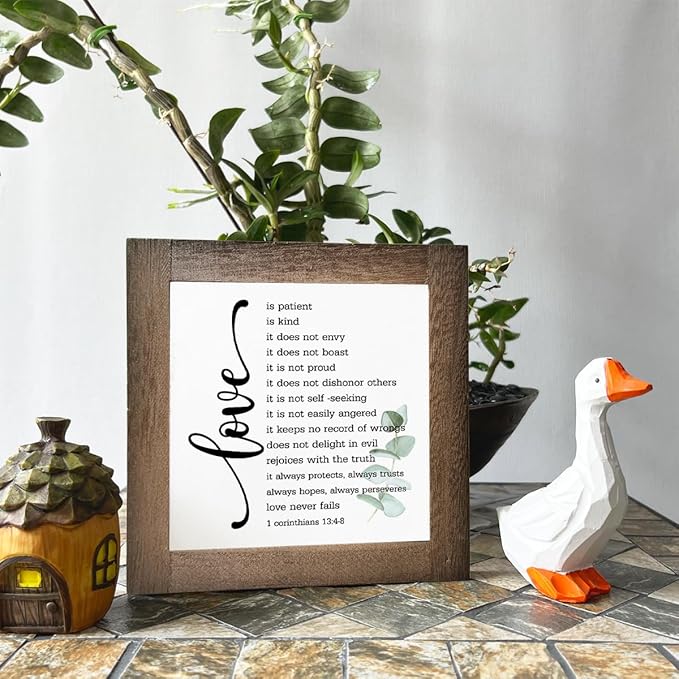 love
is patient
is kind
it does not envy
it does not boast
it is not proud
it does not dishonor others
it is not self -seeking
it is not easily angered
it keeps no record of wrongs
does not delight in evil
rejoices with the truth
it always protects, always trusts
always hopes, always perseveres
love never fails
1 corinthians 13:4-8